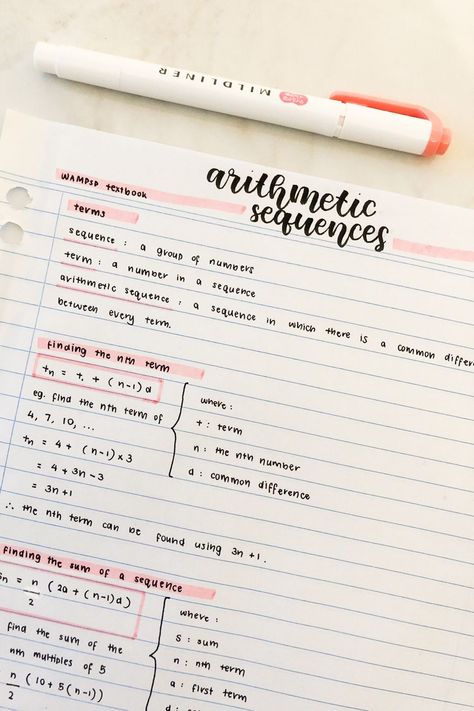 MILDLINER
arithmetic
sequences
WAMPSP textbook
terms
sequence : a group of numbers
term : a number in a sequence
arithmetic sequence : a sequence in which there is a common differe
between every term.
finding the nth term
tn = t, + (n-1)d
eg. find the nth term of
4, 7, 10, ...
tn = 4 + (n-1)×3
= 4 + 3n - 3
= 3n+1
where :
t : term
n : the nth number
d : common difference
∴ the nth term can be found using 3n +1.
finding the sum of a sequence
Sn = n/2 (2a + (n-1)d)
find the sum of the
nth multiples of 5
n/2 (10 + 5(n-1))
where :
S : sum
n : nth term
a : first term